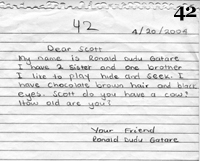 42
42
4/20/2004
Dear Scott
My name is Ronald Dudu Gatare
I have 2 Sister and one brother
I like to play hide and Seek. I
have chocolate brown hair and black
eyes. Scott do you have a cow?
How old are you?
Your Friend
Ronald Dudu Gatare